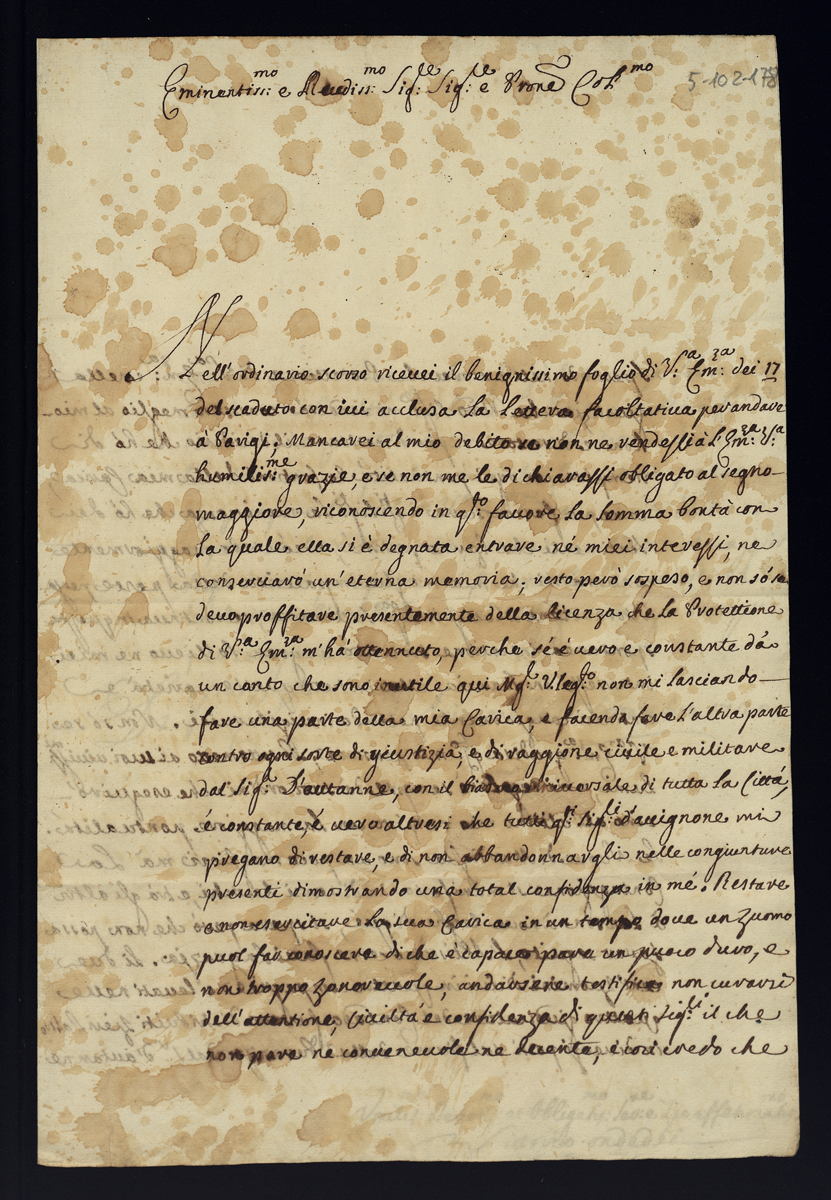 5-102-178
Eminentiss:mo e Reuerdiss:mo Sig:re Sig:re e Prone Col:mo
Nell'ordinario scorso riceuei il benignissimo foglio di V:a Em:za dei 17
del scaduto con iui acclusa la lettera facoltatiua per andare
à Parigi. Mancarei al mio debito se non ne rendessi à l'Em:za V:a
humiliss:me grazie, e se non me le dichiarassi obligato al segno
maggiore, riconoscendo in q:sto fauore la somma bontà con
la quale ella si è degnata entrare né miei interessi, ne
conseruaró un'eterna memoria; resto peró sospeso, e non só se
deuo proffitare presentemente della licenza che la Protettione
di V:ra Em:za m'há ottennuto, perche sé é uero e constante dá
un canto che sono inutile qui Mg:r Uleg:to non mi lasciando
fare una parte della mia Carica, e facendo fare l'altra parte
contro ogni sorte di giustizia, e di raggione ciuile e militare
dal Sig:r D'autanne, con il uniuersale di tutta la Cittá,
é constante, é uero altresi che tutti q:sti Sig:ri d'auignone mi
pregano di restare, e di non abbandonnargli nelle congiunture
presenti dimostrando una total confidenza in mé. Restare
e non esercitare la sua Carica in un tempo doue un zuomo
puol far conoscere di che é capace pare un puoco duro, e
non troppo zonoreuole, andarsene testifica non curarsi
dell'attentione, Ciuiltá e confidenza di questi Sig:ri il che
non pare ne conueneuole ne decente, e cosi credo che